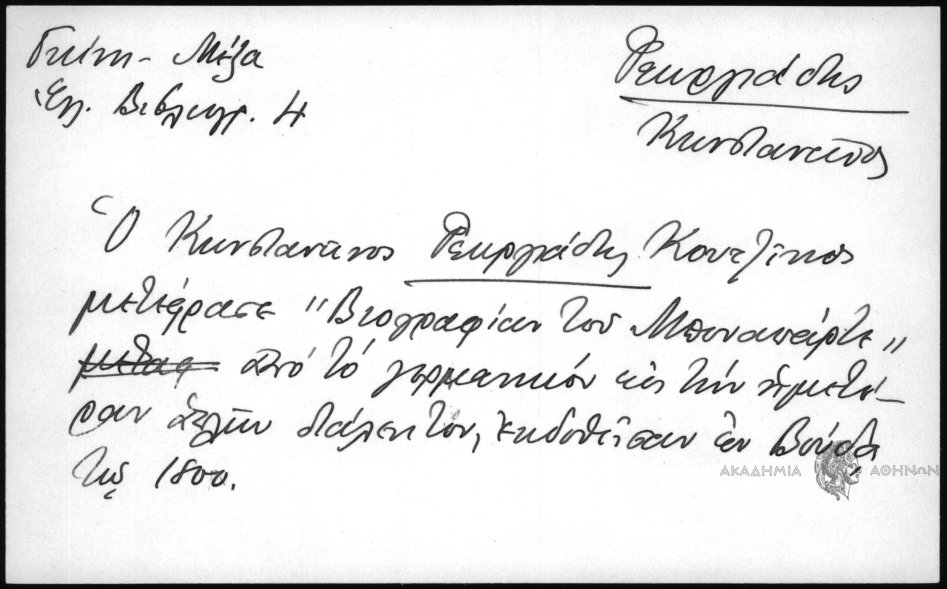 Γκίνη - Μέξα
Ἑλ. Βιβλιογρ. 4
Γεωργιάδης
Κωνσταντῖνος
Ὁ Κωνσταντῖνος Γεωργιάδης Κουτζίκος
μετέφρασε "Βιογραφίαν τοῦ Μποναπάρτε"
μεταφ ἀπό τό γερμανικόν εἰς τήν ἡμετέ-
ραν ἁπλῆν διάλεκτον, ἐκδοθεῖσαν ἐν Βούδᾳ
τῷ 1800.
ΑΚΑΔΗΜΙΑ ΑΘΗΝΩΝ